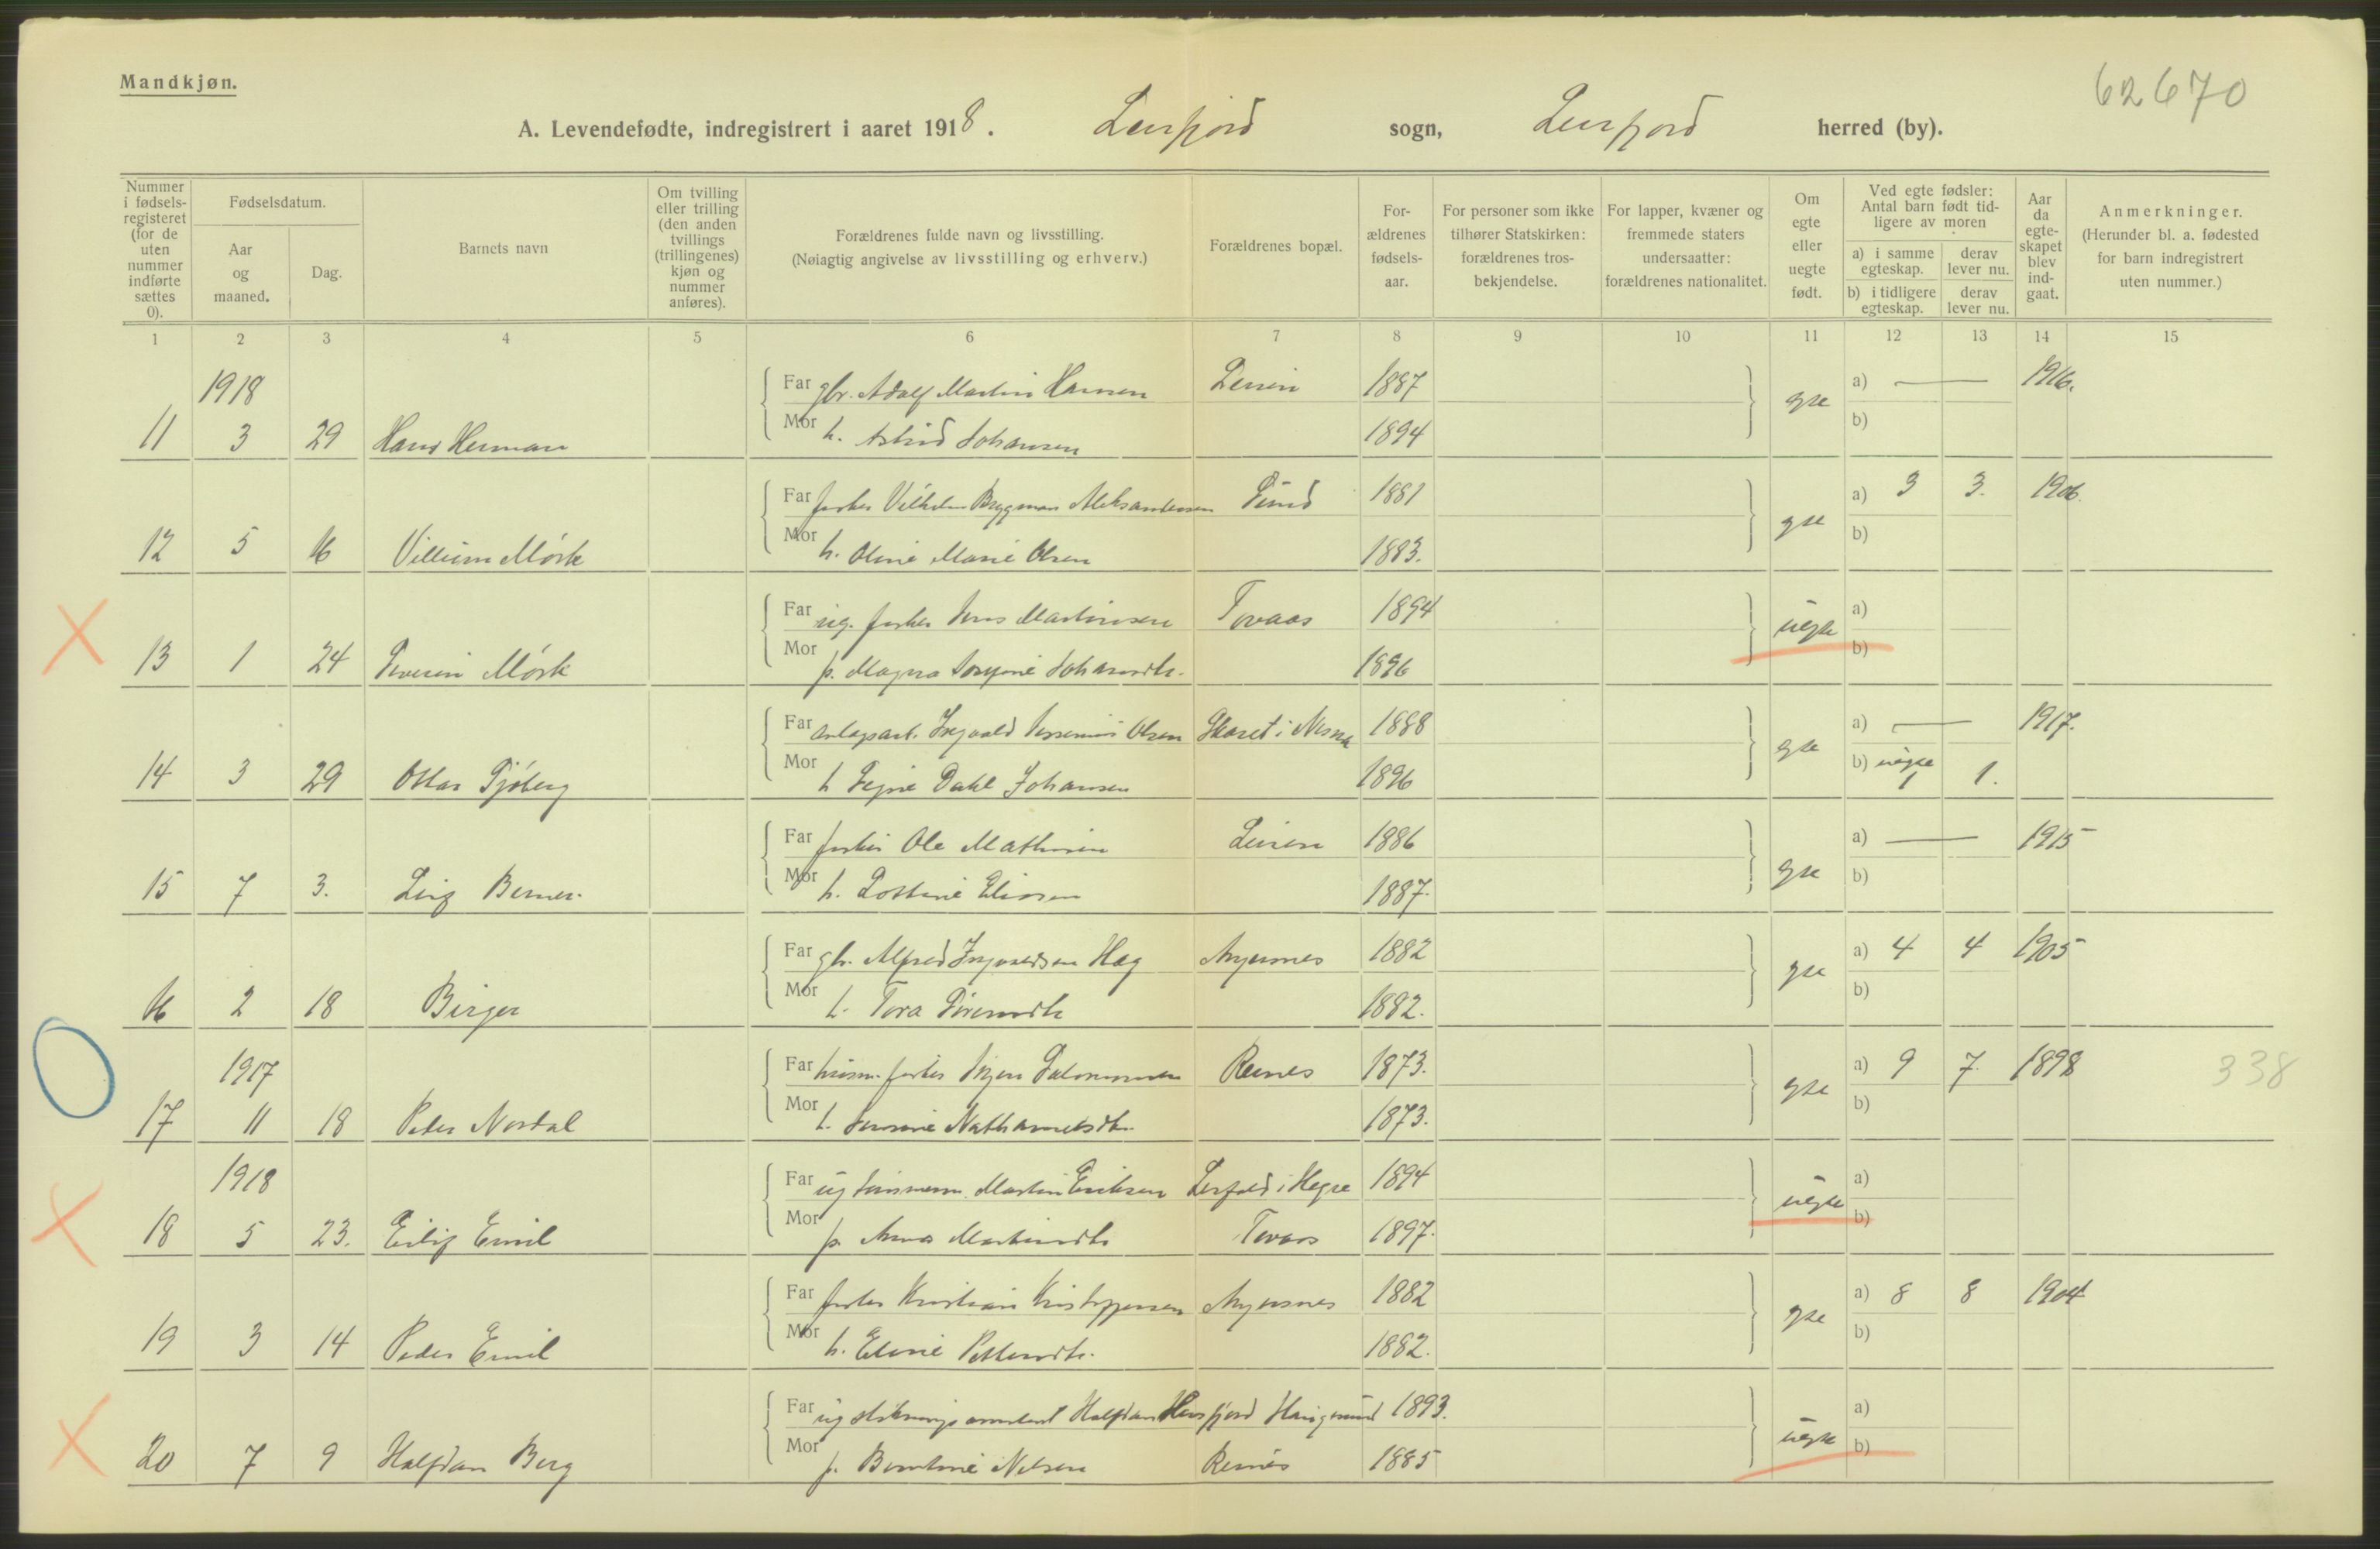 Mandkjøn.
62670
A. Levendefødte, indregistrert i aaret 1918. Leirfjord sogn, Leirfjord herred (by).
Nummer i fødselsregisteret (for de uten nummer indførte sættes 0).
Fødselsdatum.
Aar og maaned.
Dag.
Barnets navn
Om tvilling eller trilling (den anden tvillings (trillingenes) kjøn og nummer anføres).
Forældrenes fulde navn og livsstilling.
(Nøiagtig angivelse av livsstilling og erhverv.)
Forældrenes bopæl.
Forældrenes fødselsaar.
For personer som ikke tilhører Statskirken: forældrenes trosbekjendelse.
For lapper, kvæner og fremmede staters undersaatter: forældrenes nationalitet.
Om egte eller uegte født.
Ved egte fødsler: Antal barn født tidligere av moren
a) i samme egteskap.
derav lever nu.
b) i tidligere egteskap.
derav lever nu.
Aar da egteskapet blev indgaat.
Anmerkninger.
(Herunder bl. a. fødested for barn indregistrert uten nummer.)
1 2 3 4 5 6 7 8 9 10 11 12 13 14 15
1918
Far gbr. Adolf Martin Hansen 1887 a) — 1916.
11 3 29 Hans Herman Mor h. Astrid Johansen 1894 egte b)
Far fisker Vilhelm Brygman Aleksandersen Sund 1881 a) 3 3. 1906.
12 5 16 Villum Mörk Mor h. Oline Marie Olsen 1883. egte b)
Far ug. fisker Jens Martinsen Tovaas 1894 a)
13 1 24 Severin Mörk Mor p. Magna Johansdtr. 1896 uegte b)
Far anlægsarb. Ingvald Olsen i Nesna 1888 a) — 1917.
14 3 29 Ottar Sjöberg Mor h Signe Dahl Johansen 1896 egte b) uegte 1 1.
Far fisker Ole Mathisen 1886 a) — 1915
15 7 3. Leif Berner. Mor h. Eliasen 1887. egte b)
Far gbr. Alfred Ingvaldsen Hag 1882 a) 4 4 1905
16 2 18 Birger Mor h. Tora 1882. egte b)
1917
Far husm. fisker Salomonsen Reines 1873. a) 9 7. 1898 338
17 11 18 Peder Nordal Mor h. Nathanaelsdtr. 1873. egte b)
1918
Far ug Martin Eriksen i Hegre 1894 a)
18 5 23. Eilif Emil Mor p. Anna Martinsdtr Tovaas 1897. uegte b)
Far fisker Kristian Kristoffersen 1882 a) 8 8 1904
19 3 14 Peder Emil Mor h. Eline Pettersdtr. 1882. egte b)
Far ug Halfdan 1893. a)
20 7 9 Halfdan Berg Mor p. Berntine Nilsen Reines 1885 uegte b)